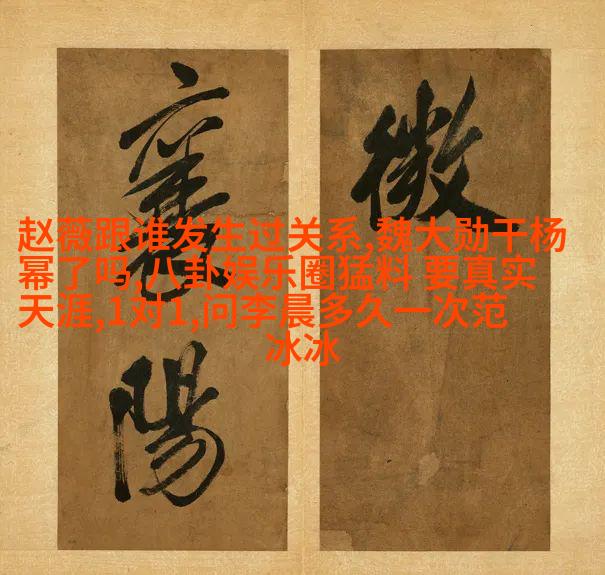 襄
陽
赵薇跟谁发生过关系,魏大勋干杨
幂了吗,八卦娱乐圈猛料 要真实
天涯,1对1,问李晨多久一次范
冰冰